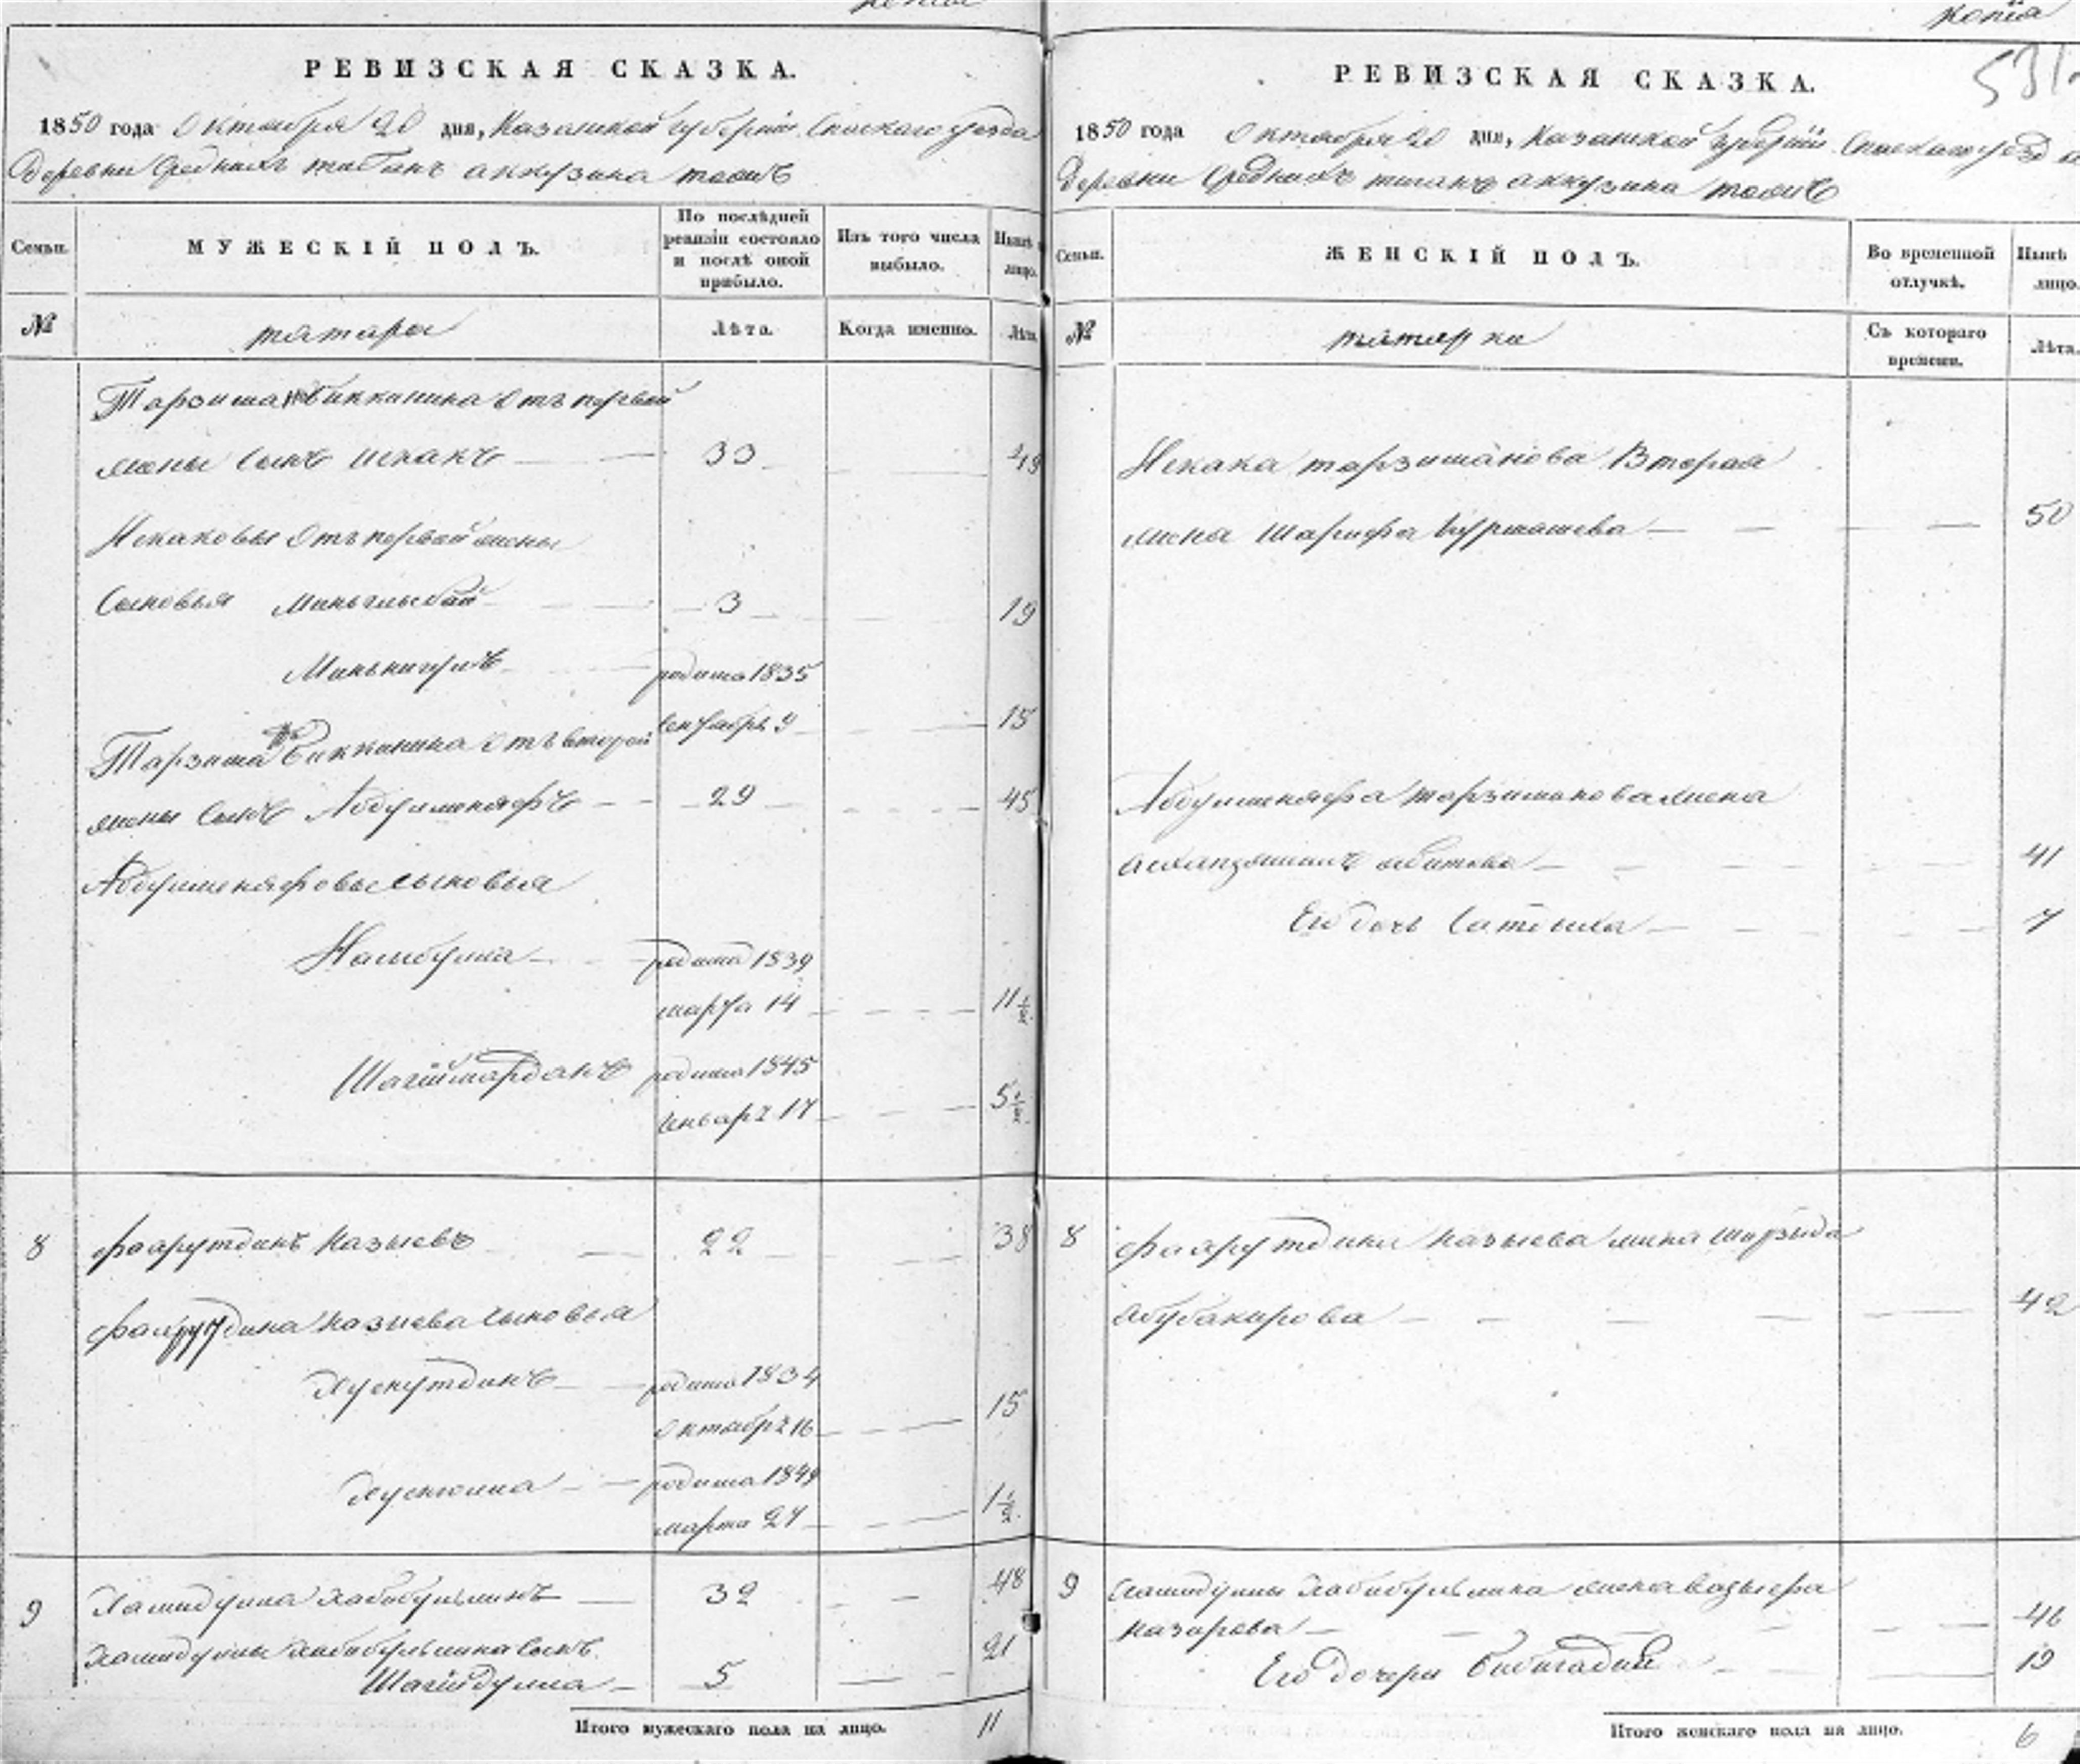 копія
РЕВИЗСКАЯ СКАЗКА.
1850 года Октября 20 дня, Казанской губерніи Спаскаго уезда
Деревни Среднихъ тиганъ аккузина тожъ
Семьи.
МУЖЕСКІЙ ПОЛЪ.
По послѣдней ревизіи состояло и послѣ оной прибыло.
Изъ того числа выбыло.
Нынѣ на лицо.
№
татары
Лѣта.
Когда именно.
Лѣта.
Тарзимана Биккинина отъ первой
жены сынъ Искакъ 33 49
Искаковы отъ первой жены
Сыновья Минглыбай 3 19
родился 1835
сентябрь 9 15
Тарзимана Биккинина отъ второй
жены сынъ 29 45
сыновья
родился 1839
марта 14 11½
Шагиймарданъ родился 1845
генварь 17 5½
8 Фахрутдинъ Назыевъ 22 38
Фахрутдина Назиева сыновья
Хуснутдинъ родился 1834
октябрь 16 15
родился 1849
марта 27 1½
9 Хамидулла Хабибульлинъ 32 48
Хамидуллы Хабибульлина сынъ 21
Шагийдулла 5
Итого мужескаго пола на лицо. 11
копія
531
РЕВИЗСКАЯ СКАЗКА.
1850 года Октября 20 дня, Казанской губерніи Спаскаго уезда
Деревни Среднихъ тиганъ аккузина тожъ
Семьи.
ЖЕНСКІЙ ПОЛЪ.
Во временной отлучкѣ.
Нынѣ на лицо.
№
татарки
Съ котораго времени.
Лѣта.
Искака тарзиманова Вторая
жена Шарифа Курмашева 50
тарзиманова жена
41
Его дочь 7
8 Фахрутдина Назыева жена
абубакирова 42
9 Хамидуллы Хабибульлина жена
назарова 46
Его дочери Бибигадия 19
Итого женскаго пола на лицо. 6